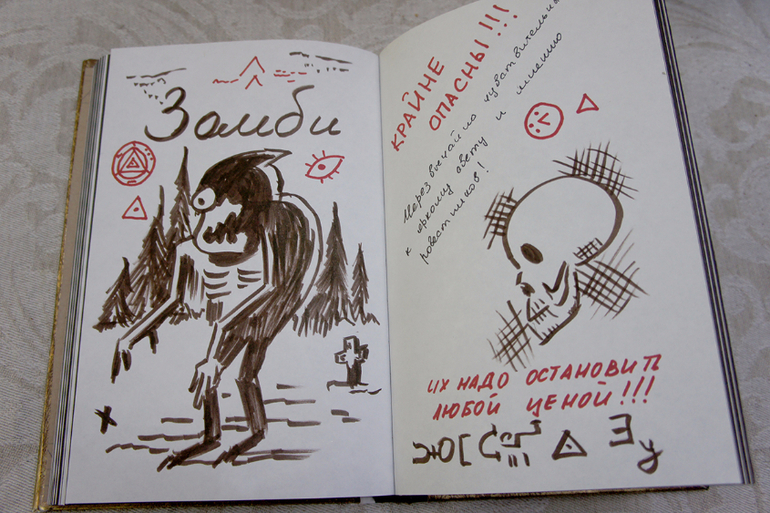 Зомби
КРАЙНЕ
ОПАСНЫ!!!
Через вычайно чувствительны
к яркому свету и мнению
ровестников!
ИХ НАДО ОСТАНОВИТЬ
ЛЮБОЙ ЦЕНОЙ!!!